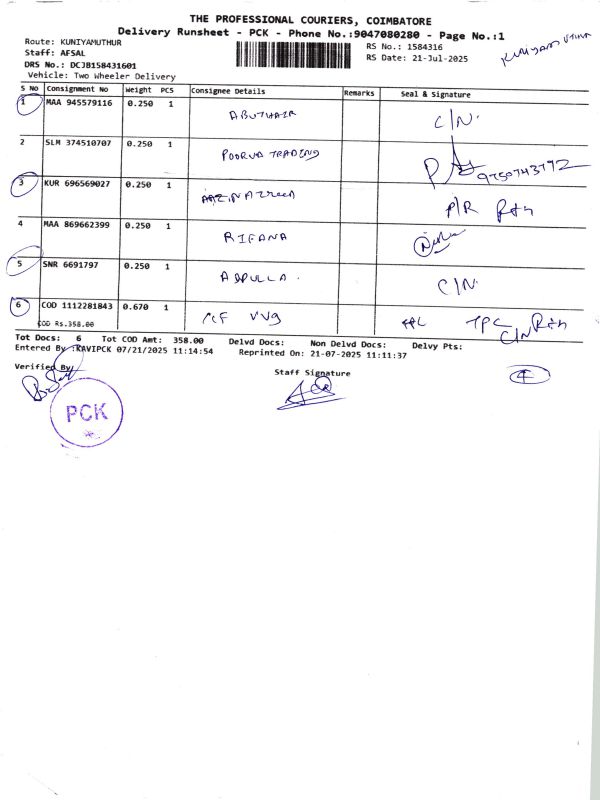 THE PROFESSIONAL COURIERS, COIMBATORE
Delivery Runsheet - PCK - Phone No.:9047080280 - Page No.:1
Route: KUNIYAMUTHUR
RS No.: 1584316
KUNIYAMUTHUR
Staff: AFSAL
RS Date: 21-Jul-2025
DRS No.: DCJB158431601
Vehicle: Two Wheeler Delivery
S No Consignment No Weight PCS Consignee Details Remarks Seal & Signature
1 MAA 945579116 0.250 1 ABUTHAIR C/N.
2 SLM 374510707 0.250 1 POORVA TRADING 9750743792
3 KUR 696569027 0.250 1 P/R Rtn
4 MAA 869662399 0.250 1 RIFANA
5 SNR 6691797 0.250 1 ABDULLA. C/N.
6 COD 1112281843 0.670 1 TPC C/N Rtn
COD Rs.358.00
Tot Docs: 6 Tot COD Amt: 358.00 Delvd Docs: Non Delvd Docs: Delvy Pts:
Entered By :KAVIPCK 07/21/2025 11:14:54 Reprinted On: 21-07-2025 11:11:37
Verified By
Staff Signature
4
PCK